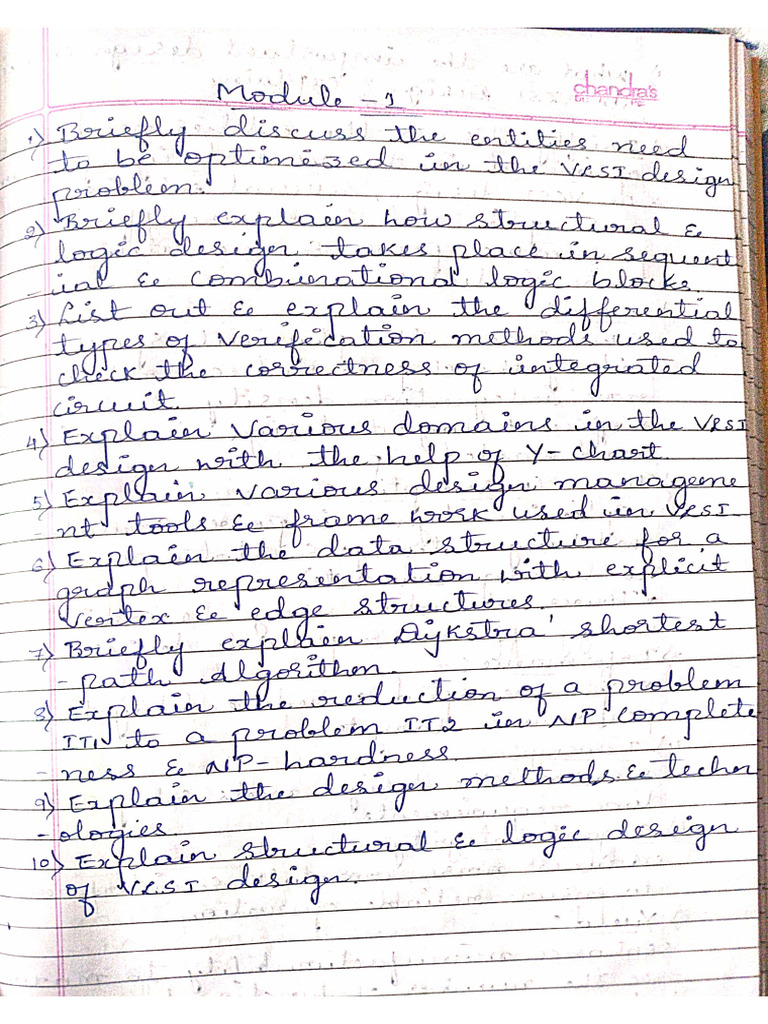 chandra's
Module - 1
1) Briefly discuss the entities need
to be optimized in the VLSI design
problem.
2) Briefly explain how structural &
logic design takes place in sequent
-ial & combinational logic blocks.
3) List out & explain the differential
types of verification methods used to
check the correctness of integrated
circuit.
4) Explain various domains in the VLSI
design with the help of Y-chart
5) Explain various design manageme
-nt tools & frame work used in VLSI
6) Explain the data structure for a
graph representation with explicit
vertex & edge structures.
7) Briefly explain Dijkstra' shortest
-path Algorithm.
8) Explain the reduction of a problem
Π1 to a problem Π2 in NP complete
-ness & NP-hardness.
9) Explain the design methods & techn
-ologies.
10) Explain structural & logic design
of VLSI design.